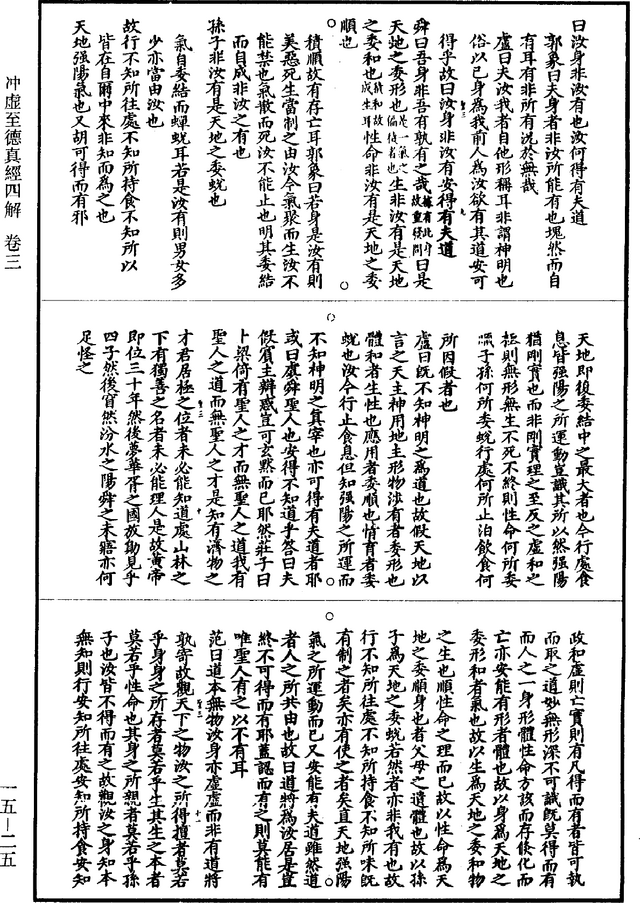 曰汝身非汝有也汝何得有夫道
郭象曰夫身者非汝所能有也塊然而自
有耳有非所有況於無哉
盧曰夫汝我者自他形稱耳非謂神明也
俗以己身為我前人為汝欲有其道安可
得乎故曰汝身非汝有安得有夫道
舜曰吾身非吾有孰有之哉據有此身故重發問曰是
天地之委形也是一氣之偏積者也生非汝有是天地
之委和也積和故成生耳性命非汝有是天地之委
順也
積順故有存亡耳郭象曰若身是汝有則
美惡死生當制之由汝今氣聚而生汝不
能禁也氣散而死汝不能止也明其委結
而自成非汝之有也
孫子非汝有是天地之委蛻也
氣自委結而蟬蛻耳若是汝有則男女多
少亦當由汝也
故行不知所往處不知所持食不知所以
皆在自爾中來非知而為之也
天地强陽氣也又胡可得而有邪
天地即復委結中之最大者也今行處食
息皆强陽之所運動豈識其所以然强陽
猶剛實也而非剛實理之至反之虛和之
極則無形無生不死不終則性命何所委
順子孫何所委蛻行處何所止泊飲食何
所因假者也
盧曰既不知神明之為道也故假天地以
言之天主神用地主形物涉有者委形也
體和者生性也應用者委順也情育者委
蛻也汝今行止食息但知强陽之所運而
不知神明之真宰也亦可得有夫道者耶
或曰虞舜聖人也安得不知道乎答曰夫
假賓主辯惑豈可玄默而已耶然莊子曰
卜梁倚有聖人之才而無聖人之道我有
聖人之道而無聖人之才是知有濟物之
才君居極之位者未必能知道處山林之
下有獨善之名者未必能理人是故黄帝
即位三十年然後夢華胥之國放勛見乎
四子然後窅然汾水之陽舜之未寤亦何
足怪之
政和虛則亡實則有凡得而有者皆可執
而取之道妙無形深不可識既莫得而有
而人之一身形體性命方該而存倏化而
亡亦安能有形者體也故以身為天地之
委形和者氣也故以生為天地之委和物
之生也順性命之理而已故以性命為天
地之委順身也者父母之遺體也故以孫
子為天地之委蛻若然者亦非我有也故
行不知所往處不知所持食不知所味既
有制之者矣亦有使之者矣直天地强陽
氣之所運動而已又安能有夫道雖然道
者人之所共由也故曰道將為汝居是豈
終不可得而有耶蓋認而有之則莫能有
唯聖人有之以不有耳
范曰道本無物汝身亦虛虛而非有道將
孰寄故觀天下之物汝之所得擅者莫若
乎身身之所存者莫若乎生其生之本者
莫若乎性命也其身之所親者莫若乎孫
子也汝皆不得而有之故觀汝之身知本
無知則行安知所往處安知所持食安知
冲虛至德真經四解 卷三
一五—二五